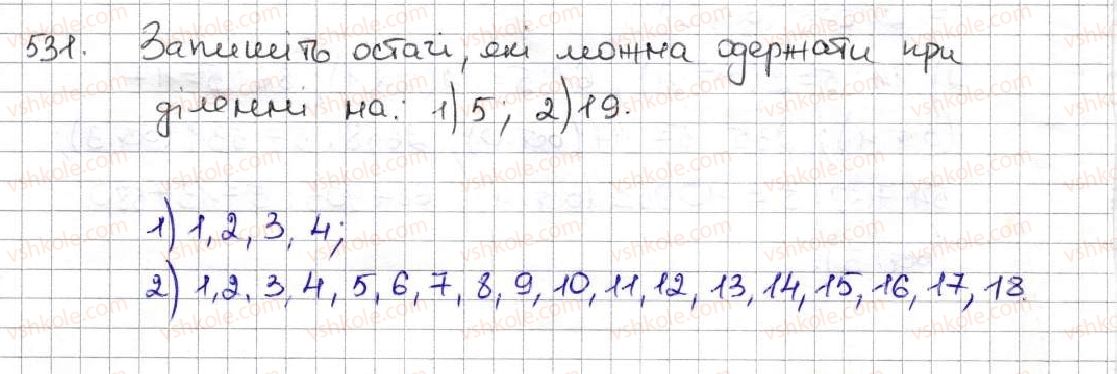 531. Запишіть остачі, які можна одержати при
діленні на: 1) 5; 2) 19.
1) 1, 2, 3, 4;
2) 1, 2, 3, 4, 5, 6, 7, 8, 9, 10, 11, 12, 13, 14, 15, 16, 17, 18.